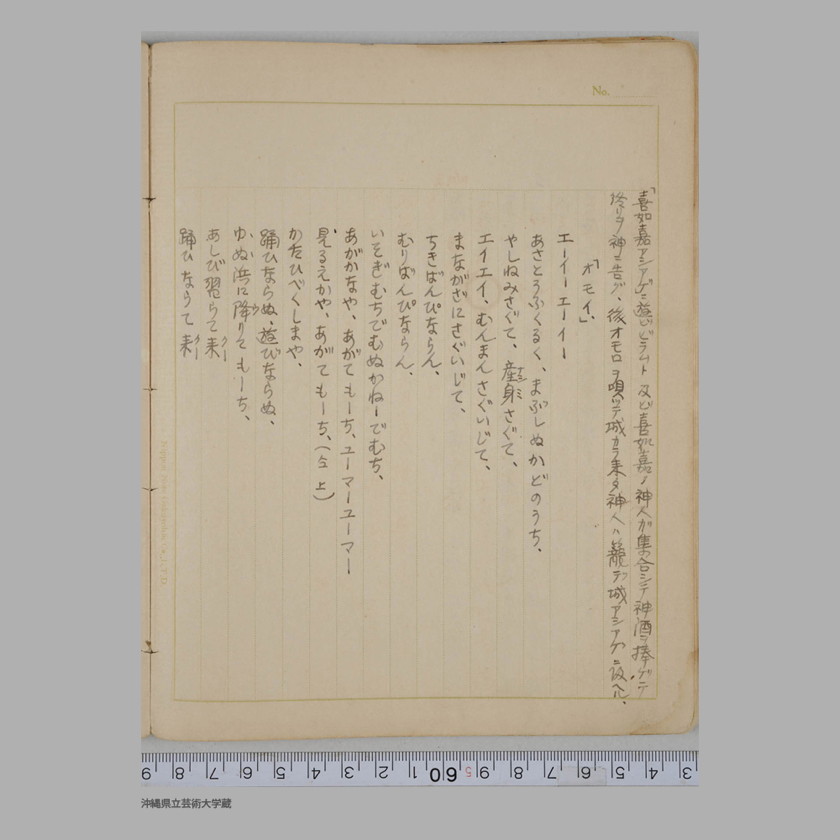 No.
「喜如嘉アシアゲニ遊ビビラムト及ビ喜如嘉ノ神人ガ集合シテ神酒ヲ捧ゲテ
終リヲ神ニ告グ、後オモロヲ唄ッテ城カラ来タ神人ハ籠デ城アシアゲニ設ヘル、
「オモイ」、
エーイーエーイー
あさとろふくるく、まぶしぬかどのうち、
やしねみさぐて、産身さぐて、
エイエイ、むんまんさぐいじて、
まながさにさぐいじて、
ちきばんぴならん、
むりばんぴならん、
いそぎむちでむぬかねーでむち、
あがかなや、あがてもーち、ユーマーユーマー
見るえかや、あがてもーち、(仝上)
かたひべくしまや、
踊ひならぬ、遊びならぬ、
ゆぬ浜に降りてもーち、
あしび習らて来
踊ひならて来
9 8 7 6 5 4 3 2 1 60 9 8 7 6 5 4 3
沖縄県立芸術大学蔵